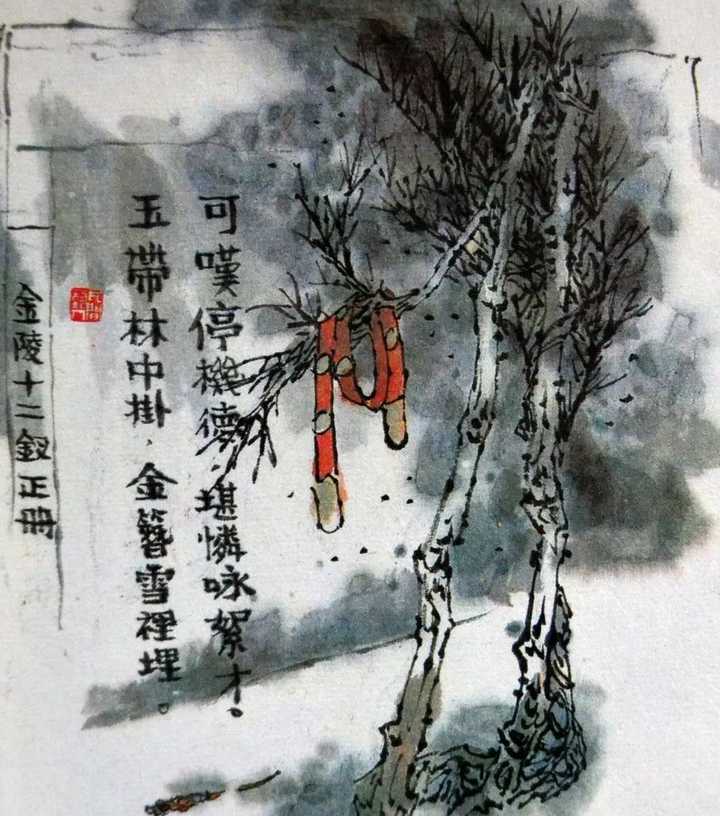 可嘆停機德，堪憐咏絮才。
玉帶林中掛，金簪雪裡埋。
金陵十二釵正冊